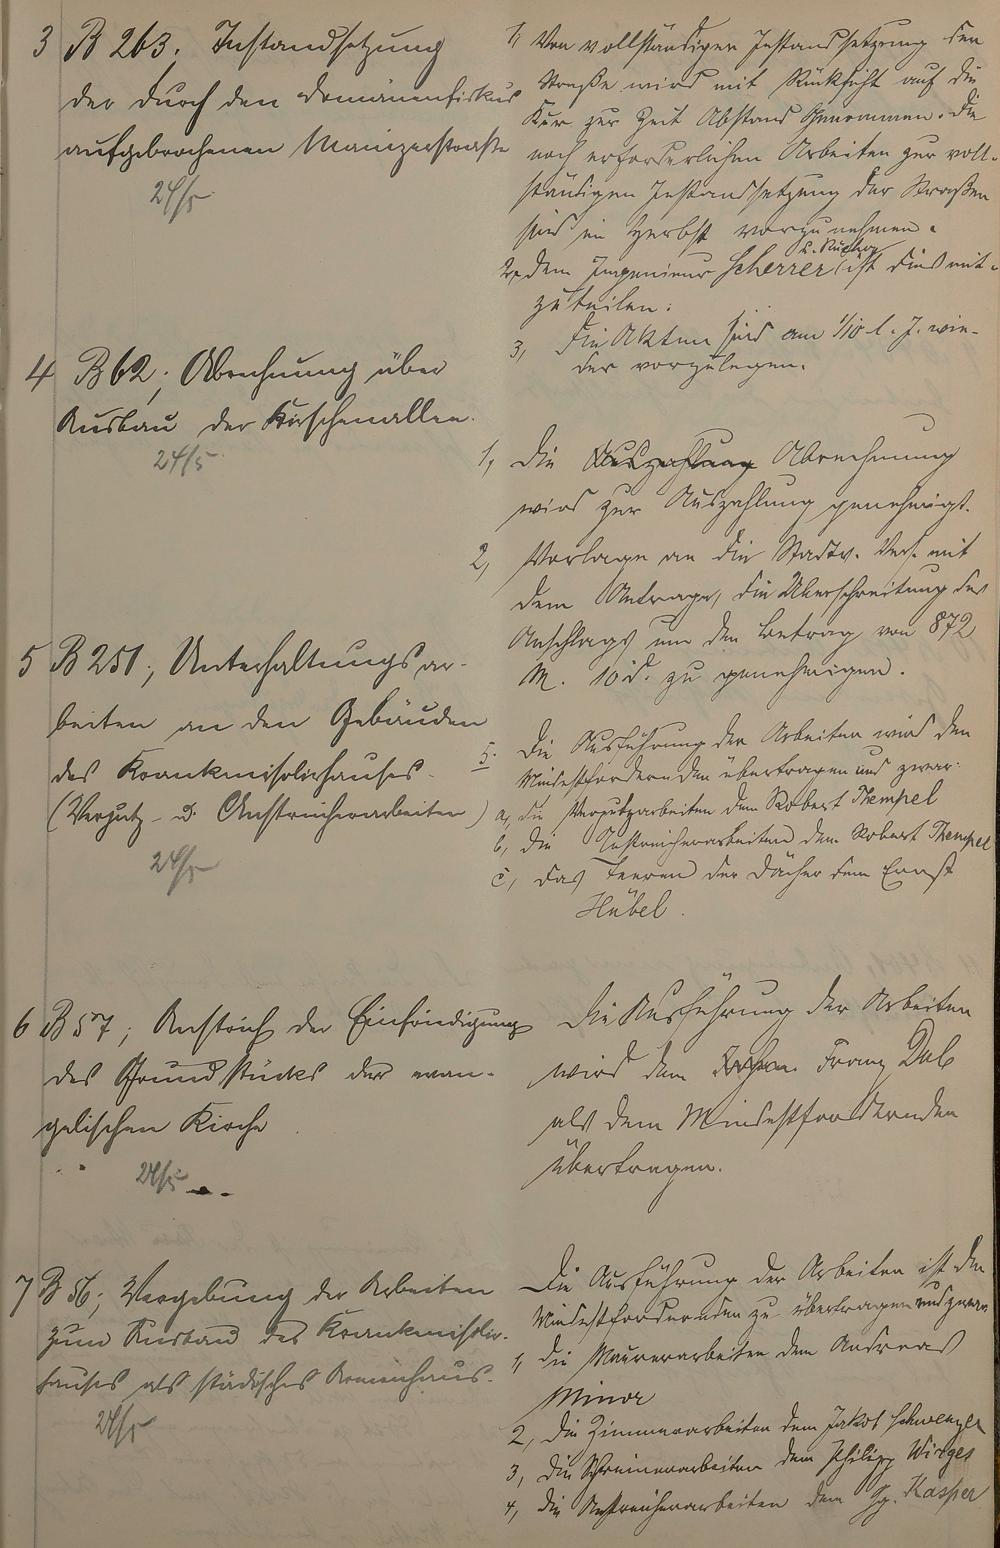 3 B 263. Instandsetzung
der durch den Domänenfiskus
aufgebrochenen Mainzerstraße
24/5
1, Von vollständiger Instandsetzung der
Straße wird mit Rücksicht auf die
Kur zur Zeit Abstand genommen. Die
noch erforderlichen Arbeiten zur voll-
ständigen Instandsetzung der Straßen
sind im Herbst vorzunehmen.
2, dem Ingenieur Scherrer ist dies mit-
zuteilen.
3, Die Akten sind am 1/10 l. J. wie-
der vorzulegen.
4 B 62; Abrechnung über
Ausbau der Kirschenallee.
24/5
1, Die Auszahlung Abrechnung
wird zur Auszahlung genehmigt.
2, Vorlage an die Stadtv. Vers. mit
dem Antrage, die Überschreitung des
Anschlags um den Betrag von 872
M. 10 d. zu genehmigen.
5 B 251; Unterhaltungsar-
beiten an den Gebäuden
des Krankenisolirhauses
(Verputz- u. Anstreicherarbeiten)
24/5
5. Die Ausführung der Arbeiten wird den
Mindestfordernden übertragen und zwar:
a, die Verputzarbeiten dem Robert Thempel
b, die Anstreicherarbeiten dem Robert Thempel
c, das Teeren der Dächer dem Ernst
Hübel.
6 B 57; Anstrich der Einfriedigung
des Grundstücks der evan-
gelischen Kirche
24/5
Die Ausführung der Arbeiten
wird dem Franz Dab
als dem Mindestfordernden
übertragen.
7 B 56; Vergebung der Arbeiten
zum Ausbau des Krankenisolir-
hauses als städtisches Armenhaus.
24/5
Die Ausführung der Arbeiten ist den
Mindestfordernden zu übertragen und zwar
1, die Maurerarbeiten dem Andreas
Minor
2, die Zimmerarbeiten dem Jakob Schwenzer
3, die Schreinerarbeiten dem Philipp Wirges
4, die Anstreicherarbeiten dem Hg. Kasper